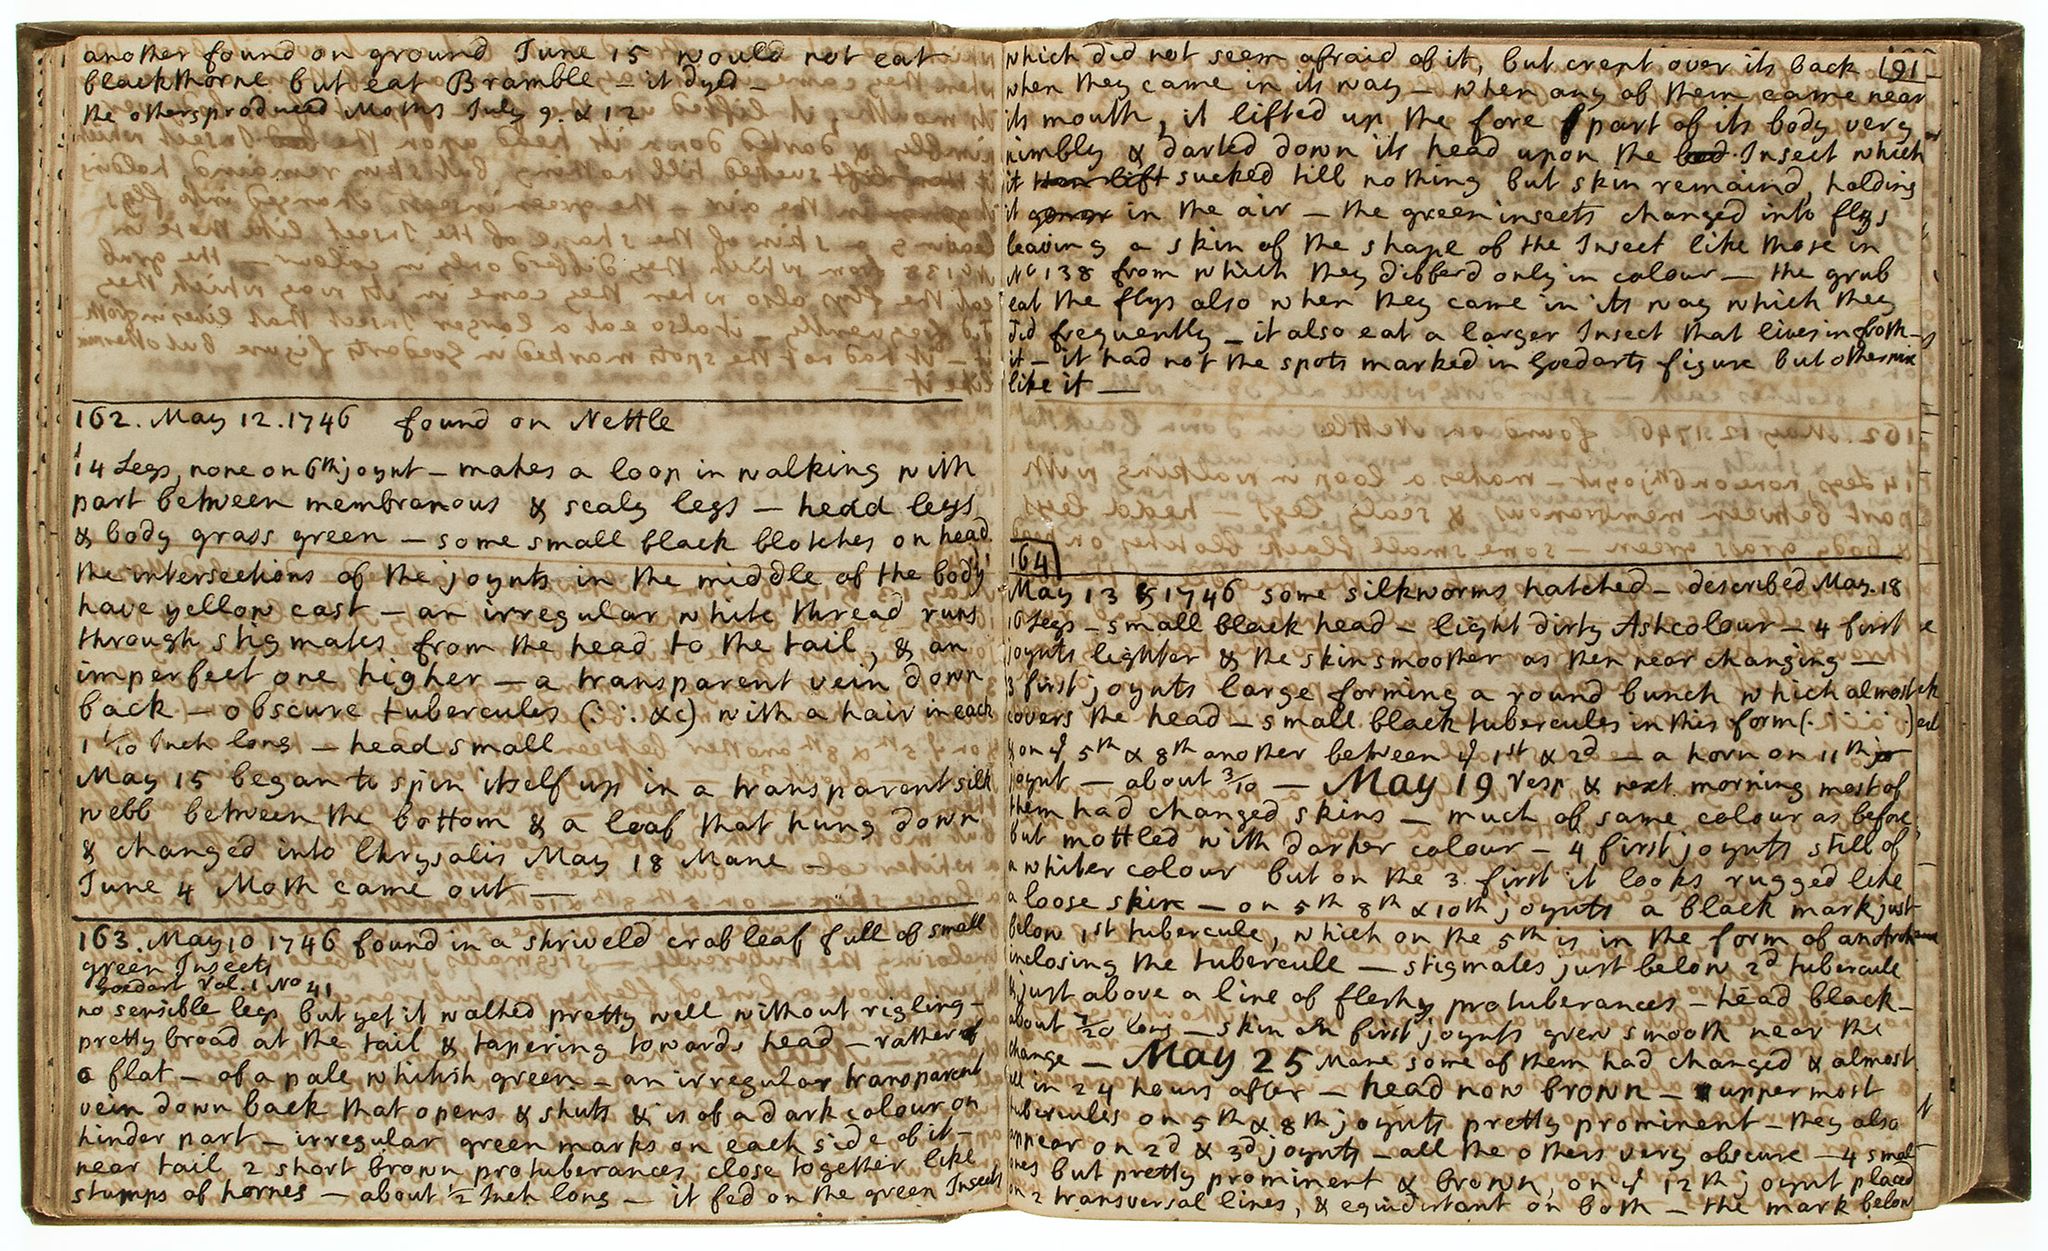 another found on ground June 15 would not eat
blackthorne but eat Bramble – it dyed –
the others produced Moths July 9. & 12
162. May 12. 1746 found on Nettle
14 Legs, none on 6th joynt – makes a loop in walking with
part between membranous & scaly legs – head legs
& body grass green – some small black blotches on head.
the intersections of the joynts in the middle of the body
have yellow cast – an irregular white thread runs
through stigmates from the head to the tail, & an
imperfect one higher – a transparent vein down
back – obscure tubercules (: ∵ &c) with a hair in each
1 1/10 Inch long – head small
May 15 began to spin itself up in a transparent silk
webb between the bottom & a leaf that hung down
& changed into Chrysalis May 18 Mane –
June 4 Moth came out —
163. May 10 1746 found in a shriveld crab leaf full of small
green Insects
Goedart Vol. 1 No 41
no sensible legs but yet it walked pretty well without rigling –
pretty broad at the tail & tapering towards head – rather
flat – of a pale whitish green – an irregular transparent
vein down back that opens & shuts & is of a dark colour on
hinder part – irregular green marks on each side of it –
near tail 2 short brown protuberances close together like
stumps of hornes – about 1/2 Inch long – it fed on the green Insects
which did not seem afraid of it, but crept over its back 191
when they came in its way – when any of them came near
its mouth, it lifted up the fore part of its body very
nimbly & darted down its head upon the Insect which
it then lift sucked till nothing but skin remaind, holding
it in the air – the green insects changed into flys
leaving a skin of the shape of the Insect like those in
No 138 from which they differd only in colour – the grub
eat the flys also when they came in its way which they
did frequently – it also eat a larger Insect that lives in froth –
it – it had not the spots marked in Goedarts figure but otherwise
like it —
164
May 13 1746 some silkworms hatched – described May. 18
16 Legs – small black head – light dirty Ashcolour – 4 first
joynts lighter & the skin smoother as then near changing —
3 first joynts large forming a round bunch which almost
covers the head – small black tubercules in this form
& on ye 5th & 8th another between ye 1st & 2d – a horn on 11th jo
joynt – about 3/10 – May 19 Vesp & next morning most of
them had changed skins – much of same colour as before,
but mottled with darker colour – 4 first joynts still of
a whiter colour but on the 3 first it looks rugged like
a loose skin – on 5th 8th & 10th joynts a black mark just
below 1st tubercule, which on the 5th is in the form of
inclosing the tubercule – stigmates just below 2d tubercule
& just above a line of fleshy protuberances – head black –
about 7/20 long – skin on first joynts grew smooth near the
change – May 25 Mane some of them had changed & almost
all in 24 hours after – head now brown – uppermost
tubercules on 5th & 8th joynts pretty prominent – they also
appear on 2d & 3d joynts – all the others very obscure – 4 small
ones but pretty prominent & brown, on ye 12th joynt placed
on 2 transversal lines, & equidistant on both – the mark below